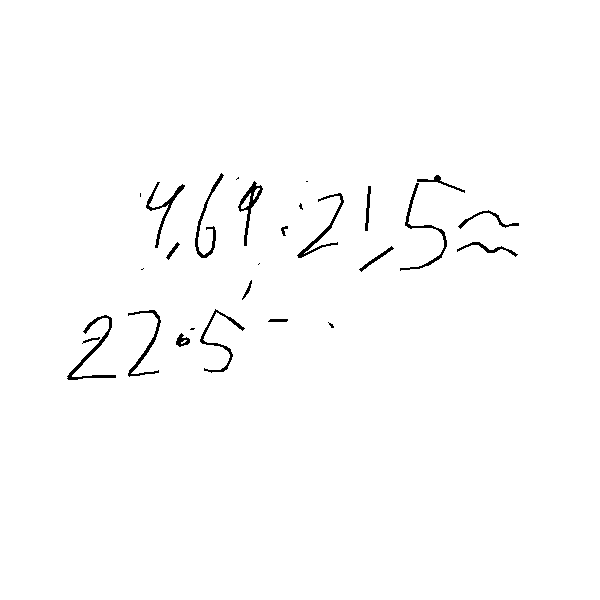 4,69·21,5≈
22·5